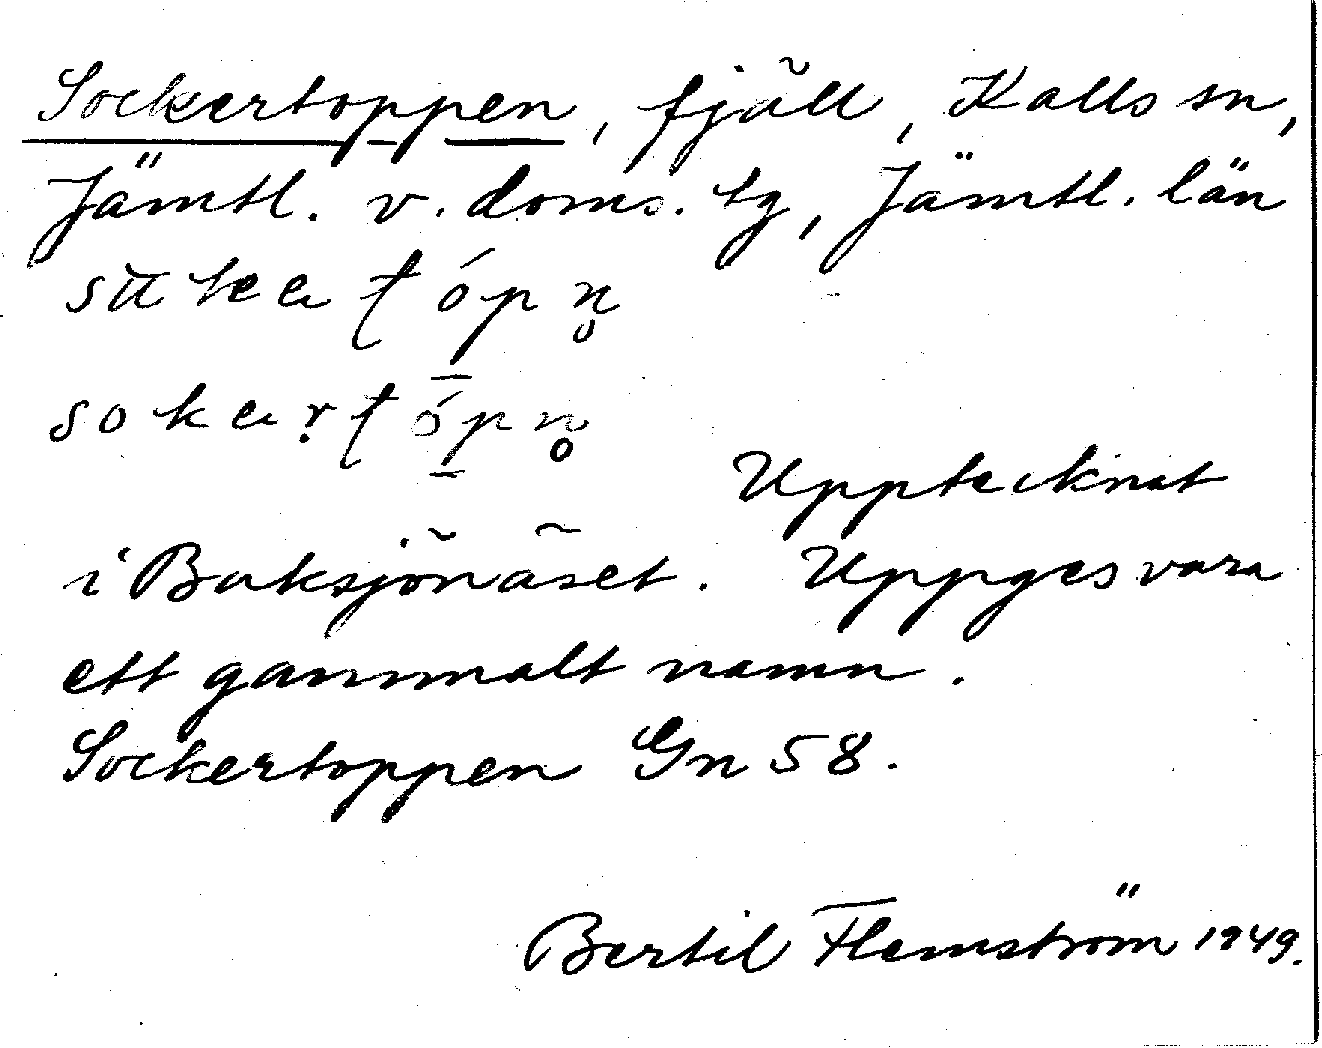 Sockertoppen, fjäll, Kalls sn,
Jämtl. v. doms. tg, Jämtl. län
tópn̥
sokarṭópn̥
Upptecknat
i Baksjönäset. Uppges vara
ett gammalt namn.
Sockertoppen Gn 58.
Bertil Flemström 1949.